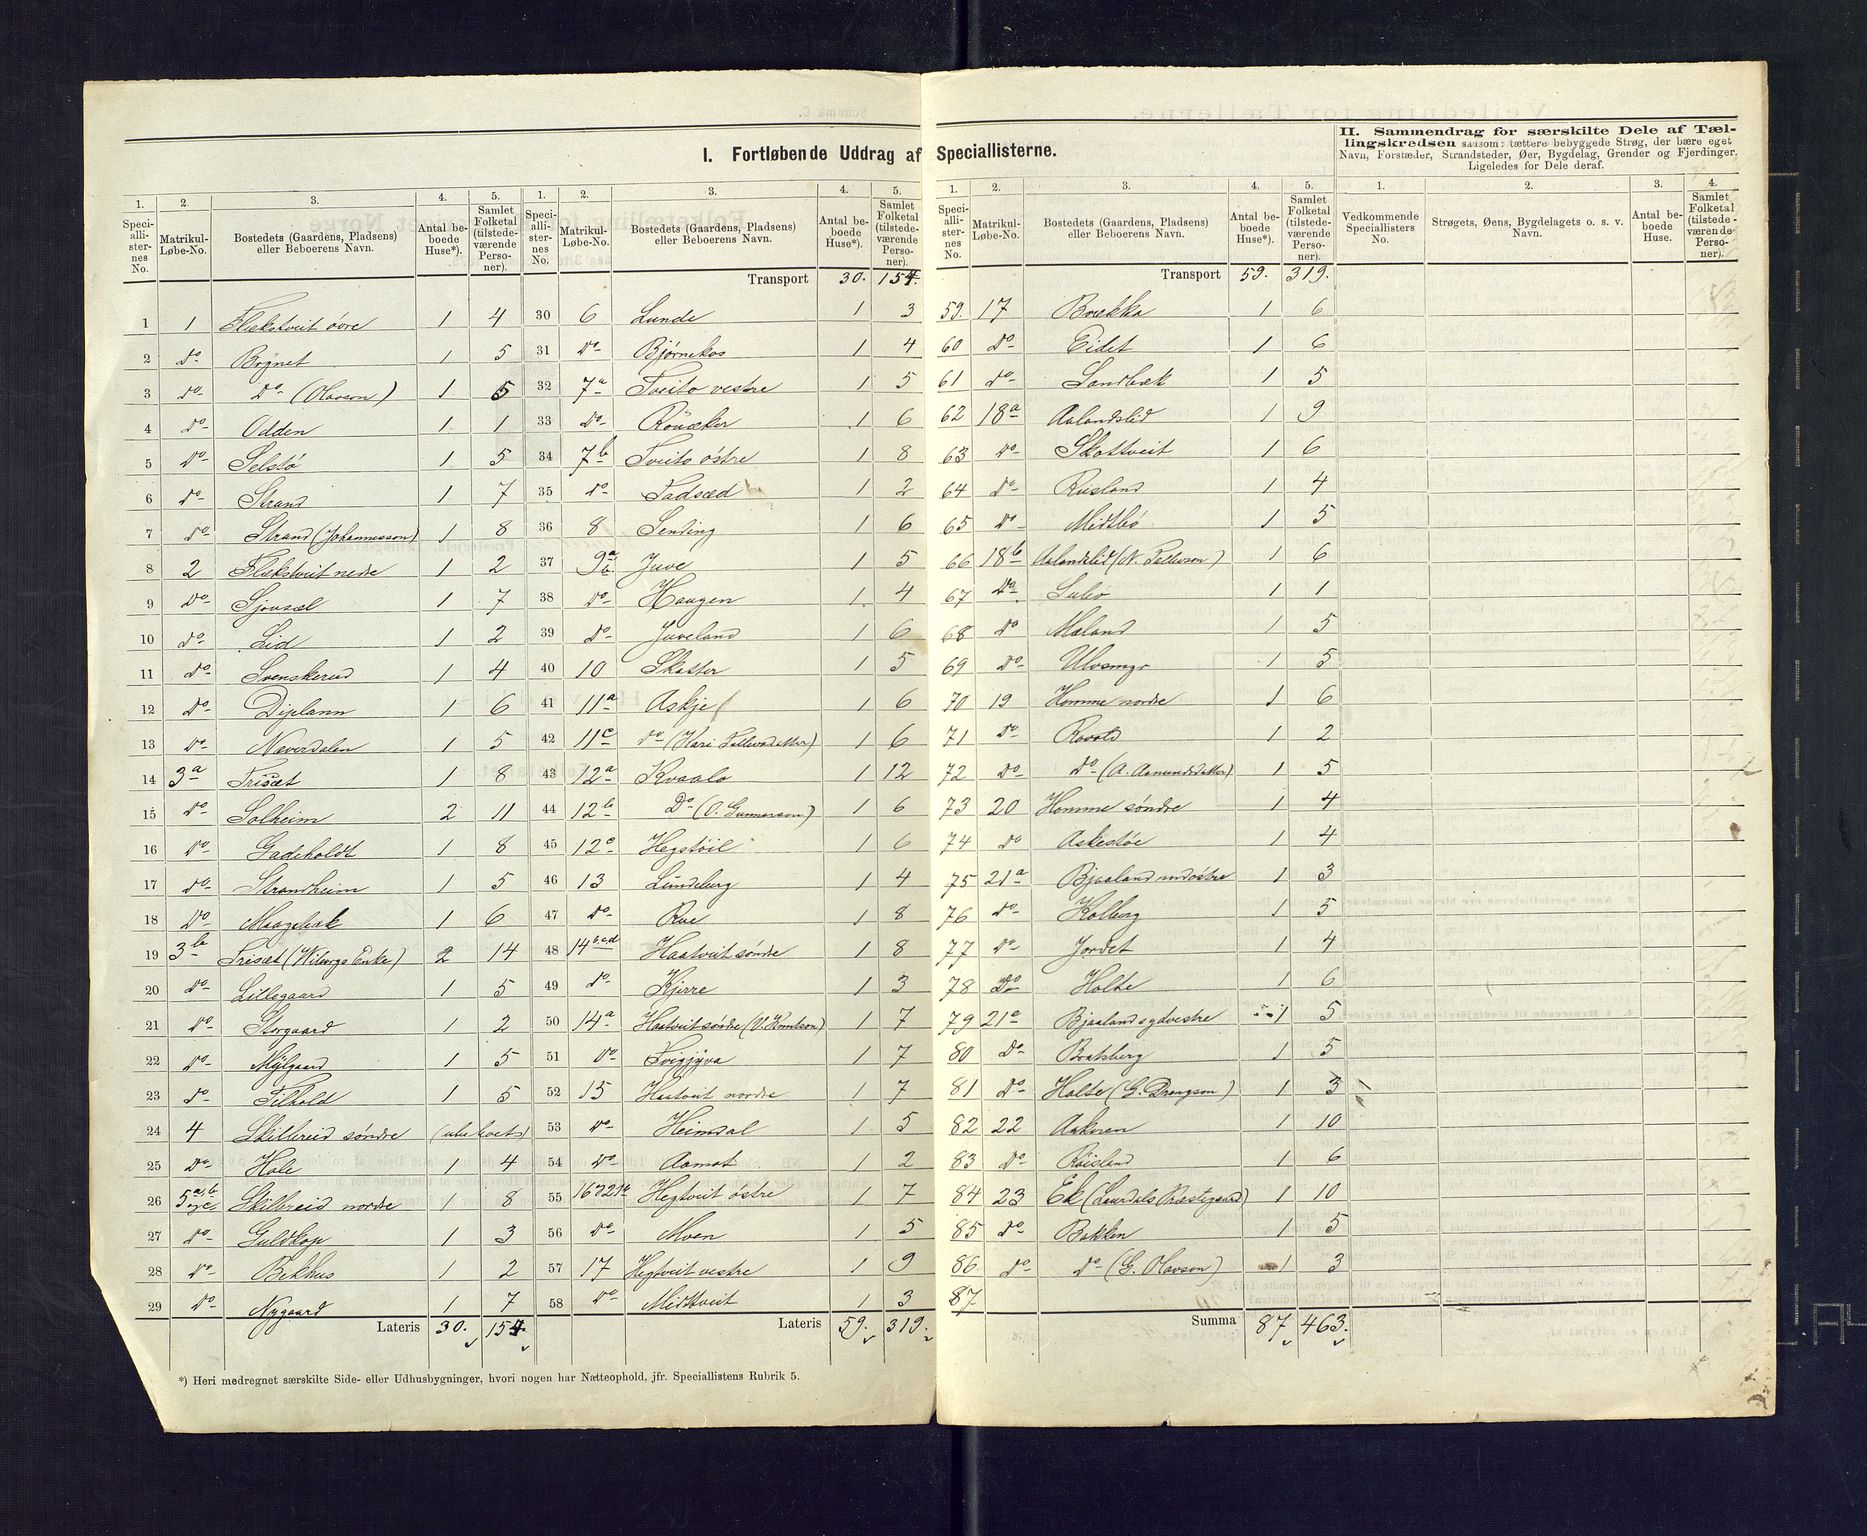 I. Fortløbende Uddrag af Speciallisterne.
II. Sammendrag for særskilte Dele af Tællingskredsen saasom: tættere bebyggede Strøg, der bære eget Navn, Forstæder, Strandsteder, Øer, Bygdelag, Grender og Fjerdinger. Ligeledes for Dele deraf.
1. 2 3. 4. 5.
Speciallisternes No. Matrikul-Løbe-No. Bostedets (Gaardens, Pladsens) eller Beboerens Navn. Antal beboede Huse*). Samlet Folketal (tilstedeværende Personer).
1 1 Flekstveit övre 1 4
2 do Bögnet 1 5
3 do do (Olavson) 1 5
4 do Odden 1 1
5 do Selstö 1 5
6 do Strand 1 7
7 do Strand (Johannesson) 1 8
8 2 Flekstveit nedre 1 2
9 do 1 7
10 do Lid 1 2
11 do Svenskerud 1 4
12 do Diplann 1 6
13 do Naverdalen 1 5
14 3a Trisæt 1 8
15 do Solheim 2 11
16 do Gadeholdt 1 8
17 do Strandheim 1 5
18 do Maagebæk 1 6
19 3b Trisæt (Wiborgs Enke) 2 14
20 do Lillegaard 1 5
21 do Storgaard 1 2
22 do 1 5
23 do Tilhold 1 5
24 4 Skillereid söndre (ubeboet)
25 do Hole 1 4
26 5a,b og c Skillereid nordre 1 8
27 do Guldkop 1 3
28 do Bekhus 1 2
29 do Nygaard 1 7
Lateris 30. 154.
*) Heri medregnet særskilte Side- eller Udhusbygninger, hvori nogen har Natteophold, jfr. Speciallistens Rubrik 5.
1. 2. 3. 4. 5.
Speciallisternes No. Matrikul-Løbe-No. Bostedets (Gaardens, Pladsens) eller Beboerens Navn. Antal beboede Huse*). Samlet Folketal (tilstedeværende Personer).
Transport 30. 154.
30 6 Lunde 1 3
31 do Björnekos 1 4
32 7a Tveito vestre 1 5
33 do Rönæker 1 6
34 7b Tveito östre 1 8
35 do Ladsæd 1 2
36 8 Sending 1 6
37 9a b Juve 1 5
38 do Haugen 1 4
39 do Juveland 1 6
40 10 Skatter 1 5
41 11a Askje 1 6
42 11c do (Kari Tallevsdatter) 1 6
43 12a Kvaale 1 12
44 12b Do (O. Gunnarson) 1 6
45 12c Hegstöil 1 6
46 13 Lundeberg 1 4
47 do Rue 1 8
48 14b,c,d Haatveit söndre 1 8
49 do Kjerre 1 3
50 14a Haatveit söndre (V. Knutson) 1 7
51 do 1 7
52 15 Haatveit nordre 1 7
53 do Heimdal 1 5
54 do Aamot 1 2
55 Hegtveit östre 1 7
56 do Moen 1 5
57 17 Hegtveit vestre 1 9
58 do Midtveit 1 3
Lateris 59. 319.
1. 2. 3. 4. 5.
Speciallisternes No. Matrikul-Løbe-No. Bostedets (Gaardens, Pladsens) eller Beboerens Navn. Antal beboede Huse*). Samlet Folketal (tilstedeværende Personer).
Transport 59. 319.
59. 17 Brekka 1 6
60 do Eidet 1 6
61 do Sandbæk 1 5
62 18a Aalandslid 1 9
63 do Skottveit 1 6
64 do Rusland 1 4
65 do Midtbö 1 5
66 18b Aalandslid (N. Tallevson) 1 6
67 do 1 1
68 do Maland 1 5
69 do Ulvsmyr 1 5
70 19 Homme nordre 1 6
71 do Rovold 1 2
72 do do (A. Aamundsdatter) 1 5
73 20 Homme söndre 1 4
74 do Askestöe 1 4
75 21a Bjaaland nordöstre 1 3
76 do Kolberg 1 5
77 do Jordet 1 4
78 do Holte 1 6
79 21c Bjaaland sydvestre 1 5
80 do Bratsberg 1 5
81 do Holte (G. Drengson) 1 3
82 22 Aakeren 1 10
83 do Röisland 1 6
84 23 Ek (Laurdals Præstegaard) 1 10
85 do Bakken 1 5
86 do do (G. Olavson) 1 3
87
Summa 87 463.
1. 2. 3. 4.
Vedkommende Speciallisters No. Strøgets, Øens, Bygdelagets o. s. v. Navn. Antal beboede Huse. Samlet Folketal (tilstedeværende Personer).